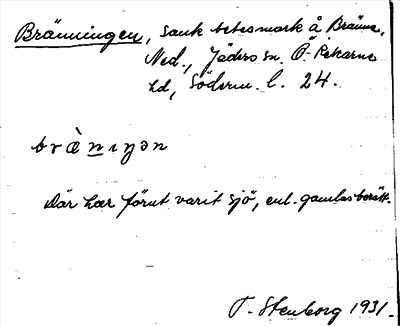 Bränningen, sank betesmark å Bränne,
Ned., Jäders sn. Ö. Rekarne
hd, Söderm. l. 24.
bræ̀nıŋən
Där har förut varit sjö, enl. gamlas berätt.
T. Stenborg 1931.